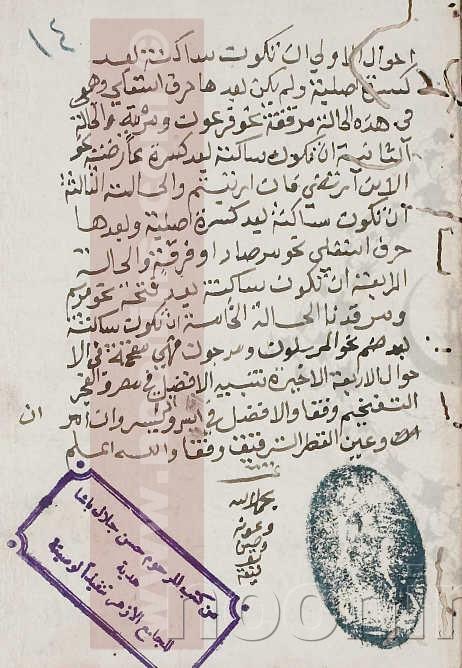 ١٤
احوال الاولي ان تكون ساكنة بعد
كسرة اصلية ولم يكن بعدها حرف استعلي وهي
في هذه الحالة مرققة نحو فرعون ومرية والحالة
الثانية ان تكون ساكنة بعد كسرة عارضة نحو
الا من ارتضي وان ارتبتم والحالة الثالثة
ان تكون ساكنة بعد كسرة اصلية وبعدها
حرف استعلي نحو مرصادا وفرقة والحالة
الرابعة ان تكون ساكنة بعد فتحة نحو مريم
ومرقدنا الحالة الخامسة ان تكون ساكنة
بعد ضم نحو المرسلون ومرجون فهي مفخمة في الا
حوال الاربعة الاخيرة تنبيه الافضل في مصر والفجر
التفخيم وقفا والافضل في يسر وان اسر ان
وعين القطر الترقيق وقفا والله اعلم
بحمد الله
وعونه
وحسن
توفيقه
من كتب المرحوم حسن جلال باشا
هدية
للجامع الازهر تنفيذا لوصيته